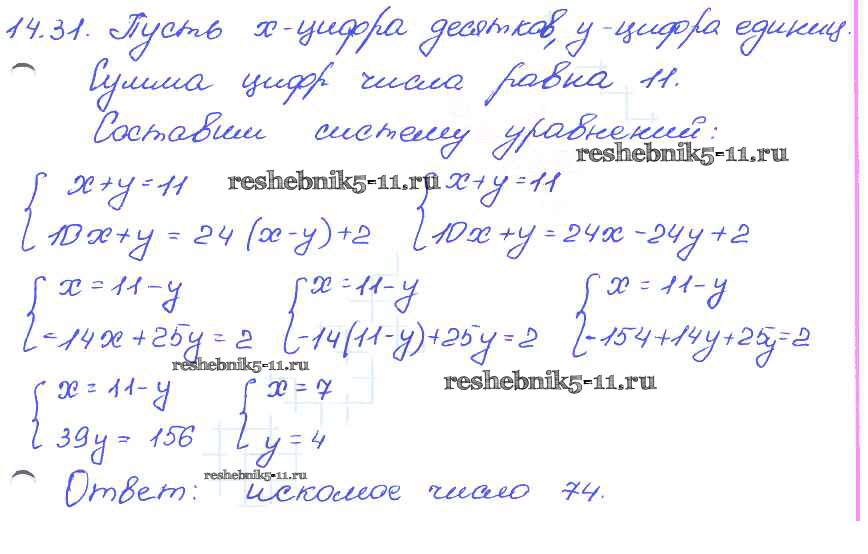 14.31. Пусть x-цифра десятков, y-цифра единиц.
Сумма цифр числа равна 11.
Составим систему уравнений:
reshebnik5-11.ru
x+y=11 reshebnik5-11.ru x+y=11
10x+y = 24(x-y)+2 10x+y=24x-24y+2
x=11-y x=11-y x = 11-y
-14x+25y = 2 -14(11-y)+25y=2 -154+14y+25y=2
reshebnik5-11.ru
x = 11-y x = 7 reshebnik5-11.ru
39y = 156 y = 4
reshebnik5-11.ru
Ответ: искомое число 74.